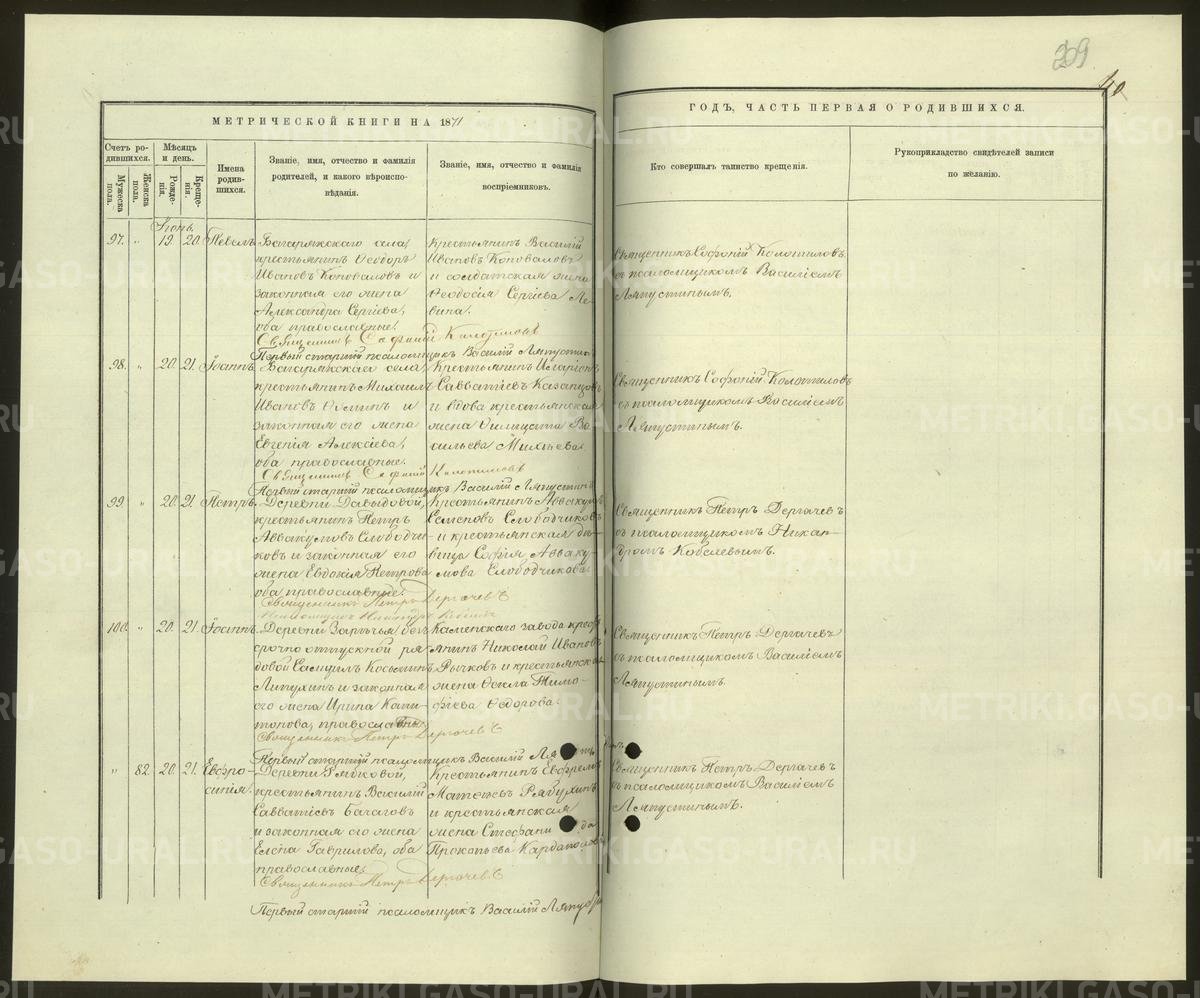 209
40
МЕТРИЧЕСКОЙ КНИГИ НА 1871
ГОДЪ, ЧАСТЬ ПЕРВАЯ О РОДИВШИХСЯ.
Счетъ родившихся.
Мѣсяцъ и день.
Мужеска пола.
Женска пола.
Рожденія.
Крещенія.
Имена родившихся.
Званіе, имя, отчество и фамилія родителей, и какого вѣроисповѣданія.
Званіе, имя, отчество и фамилія воспріемниковъ.
Кто совершалъ таинство крещенія.
Рукоприкладство свидѣтелей записи по желанію.
Іюнь.
97. „ 19 20. Павелъ.
Багарякскаго села,
крестьянинъ Ѳеодоръ
Ивановъ Коноваловъ и
законная его жена
Александра Сергіева,
оба православные.
Крестьянинъ Василій
Ивановъ Коноваловъ
и солдатская жена
Ѳеодосія Сергіева Левина.
Священникъ Софоній Колотиловъ
съ псаломщикомъ Василіемъ
Ляпустинымъ.
Священникъ Софоній Колотиловъ
Первый старшій псаломщикъ Василій Ляпустинъ
98. „ 20. 21. Іоаннъ.
Багарякскаго села,
крестьянинъ Михаилъ
Ивановъ Ѳоминъ и
законная его жена
Евгенія Алексіева,
оба православные.
Крестьянинъ Иларіонъ
Савватіевъ Казанцовъ
и вдова крестьянская
жена Ѳилицата Васильева
Священникъ Софоній Колотиловъ
съ псаломщикомъ Василіемъ
Ляпустинымъ.
Священникъ Софоній Колотиловъ
Первый старшій псаломщикъ Василій Ляпустинъ
99. „ 20. 21. Петръ.
Деревни Давыдовой,
крестьянинъ Петръ
Аввакумовъ Слободчиковъ
и законная его
жена Евдокія Петрова
оба православные.
Крестьянинъ Аввакумъ
Семеновъ Слободчиковъ
и крестьянская дѣвица
Софія Аввакумова
Слободчикова.
Священникъ Петръ Дергачевъ
съ псаломщикомъ Никандромъ
Кобелевымъ.
Священникъ Петръ Дергачевъ
Псаломщикъ Никандръ Кобелевъ
100. „ 20. 21. Іоаннъ.
Деревни Зарѣчья безсрочно
отпускной рядовой
Самуилъ Косьминъ
Липухинъ и законная
его жена Ирина Капитонова,
православные
Каменскаго завода крестьянинъ
Николай Ивановъ
Рычковъ и крестьянская
жена Ѳекла Тимофіева
Ѳедорова.
Священникъ Петръ Дергачевъ
съ псаломщикомъ Василіемъ
Ляпустинымъ.
Священникъ Петръ Дергачевъ
Первый старшій псаломщикъ Василій
„ 82. 20. 21. Евфросинія.
крестьянинъ Василій
Савватіевъ Бачаговъ
и законная его жена
Елена Гаврилова, оба
православные.
Крестьянинъ Евфремъ
Матѳеевъ Рябухинъ
и крестьянская
жена Стефанида
Прокопьева Кардаполова
Священникъ Петръ Дергачевъ
съ псаломщикомъ Василіемъ
Ляпустинымъ.
Священникъ Петръ Дергачевъ
Первый старшій псаломщикъ Василій Ляпустинъ
METRIKI.GASO-URAL.RU